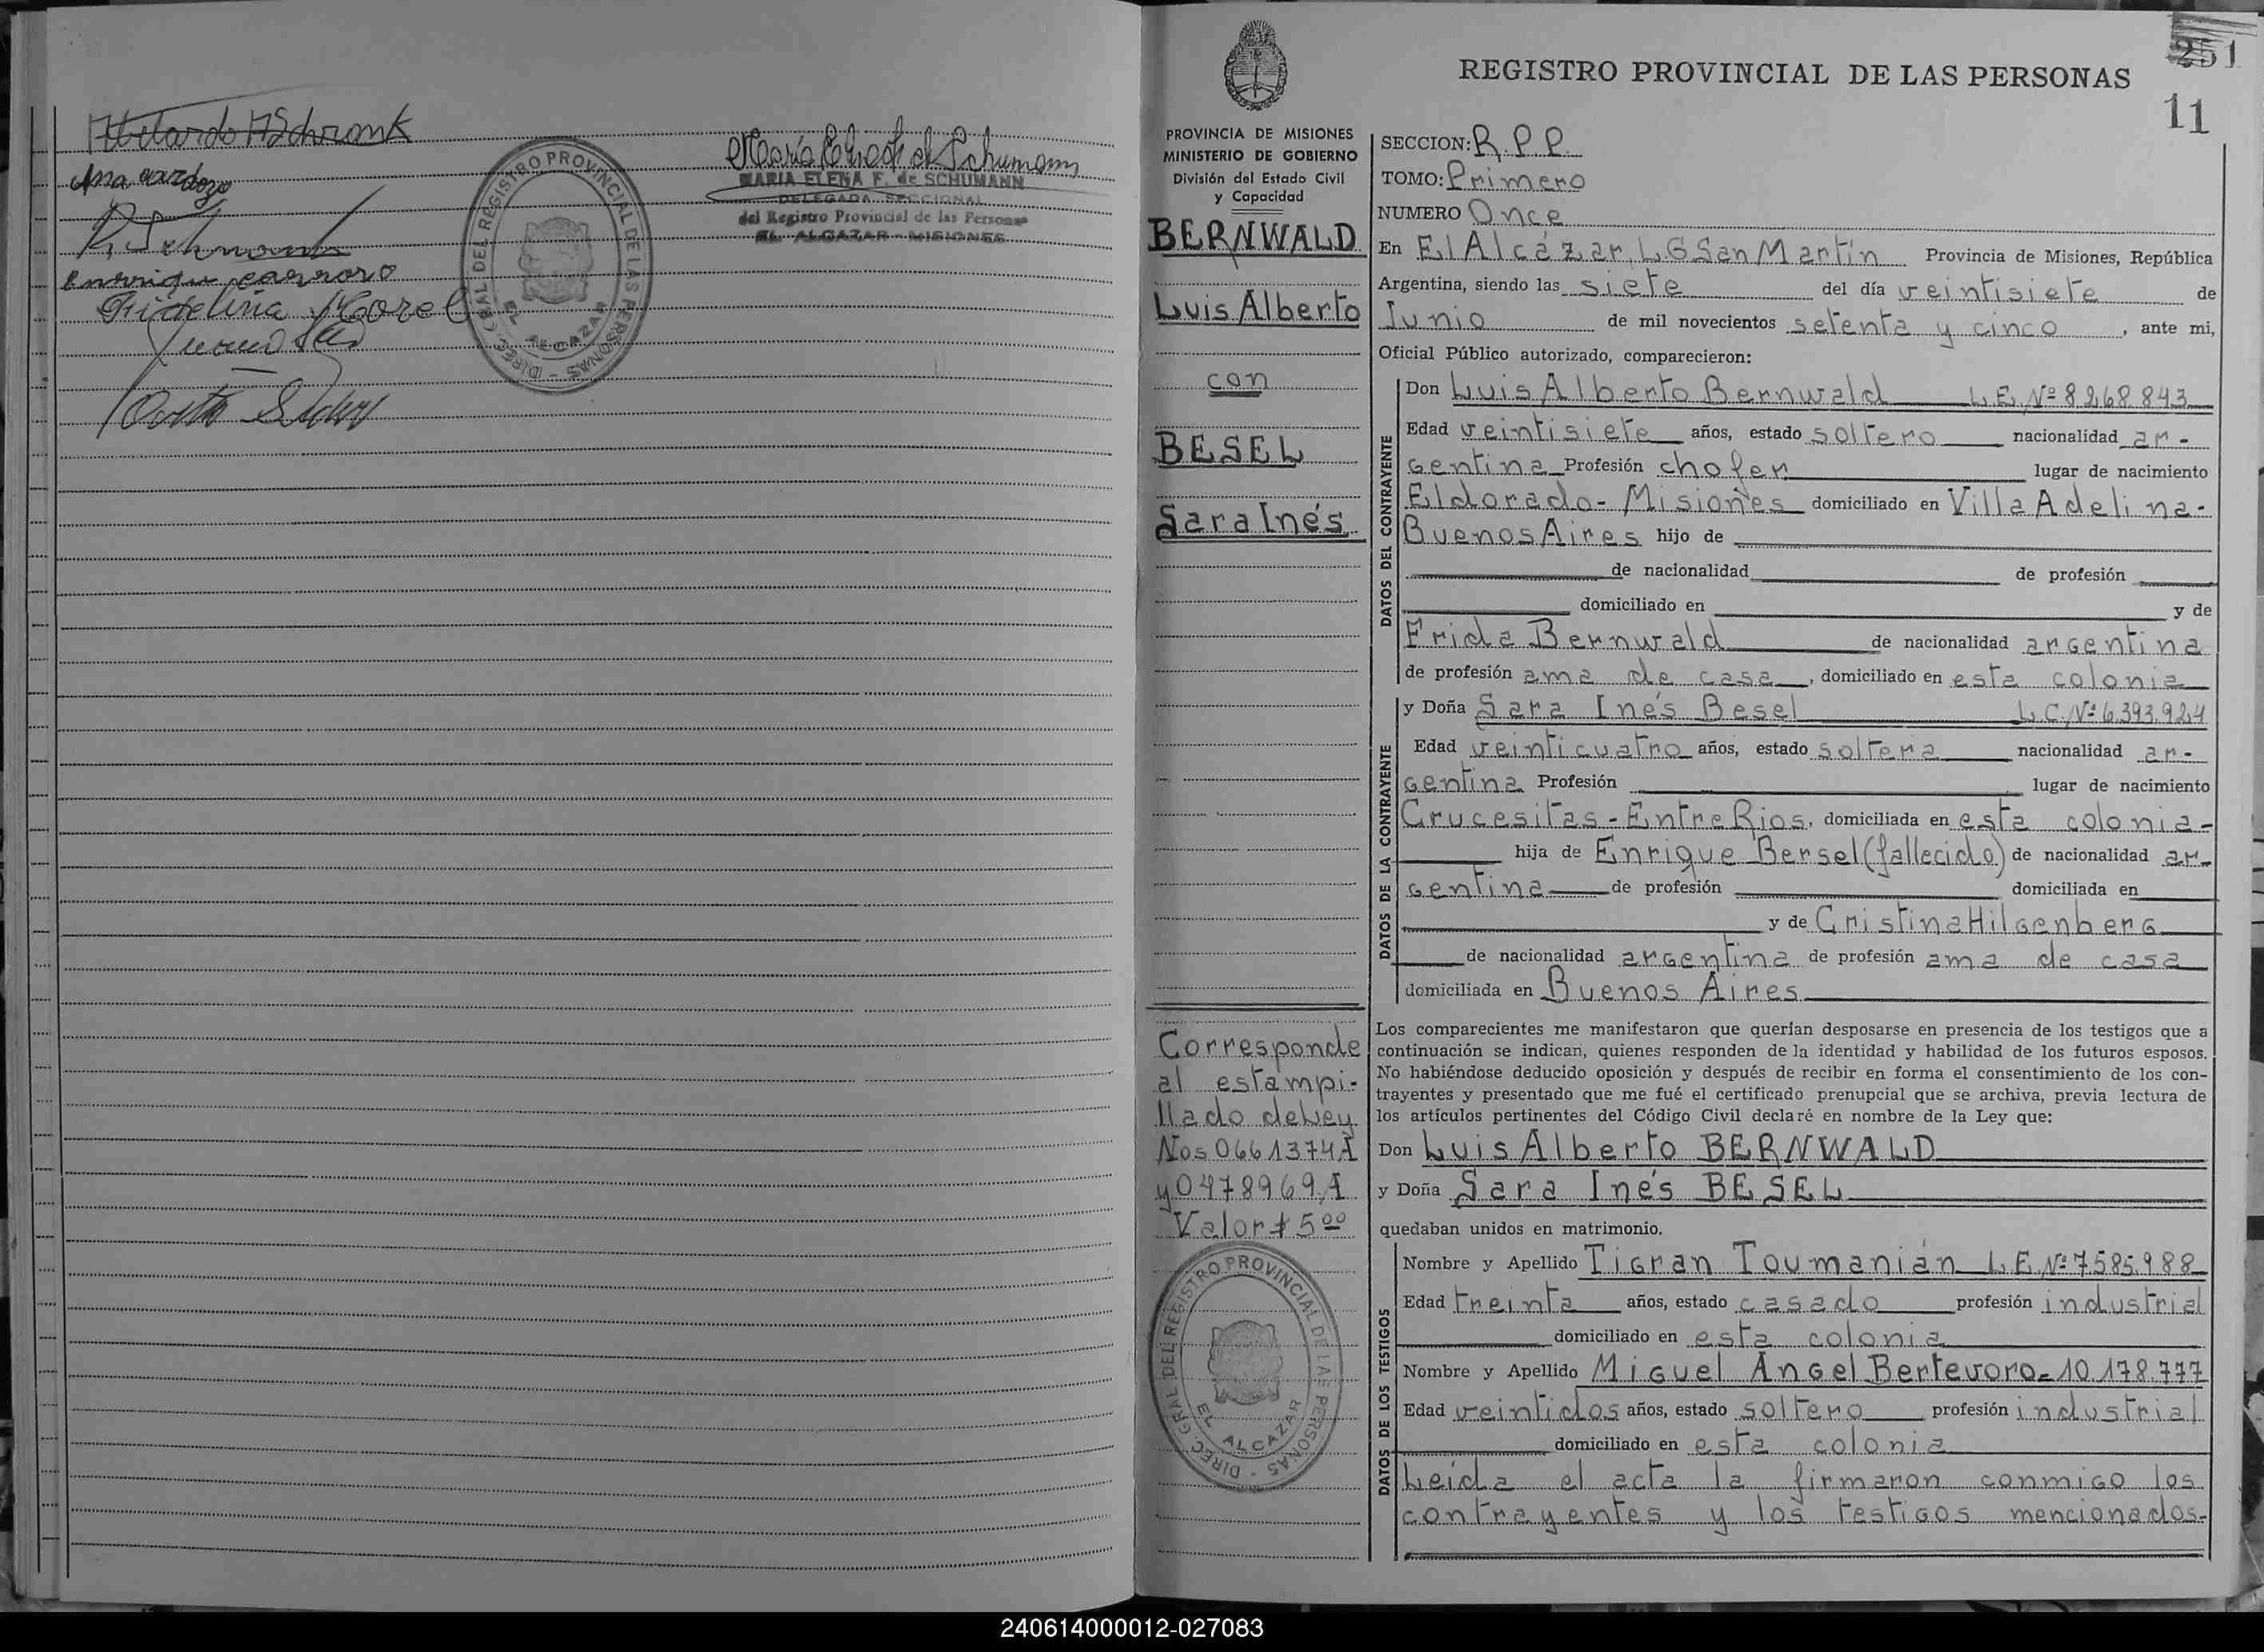 Abelardo A Schronk
Ana cardozo
Enrrique carroro
Fidelina Morel
DIREC. GRAL DEL REGISTRO PROVINCIAL DE LAS PERSONAS
EL ALCAZAR
MARIA ELENA F. de SCHUMANN
DELEGADA SECCIONAL
del Registro Provincial de las Personas
EL ALCAZAR - MISIONES
251
REGISTRO PROVINCIAL DE LAS PERSONAS
11
PROVINCIA DE MISIONES
MINISTERIO DE GOBIERNO
División del Estado Civil
y Capacidad
BERNWALD
Luis Alberto
con
BESEL
Sara Inés
Corresponde
al estampi-
llado deLey
Nos 0661374A
y 0478969A
Valor $ 5 00
DIREC. GRAL DEL REGISTRO PROVINCIAL DE LAS PERSONAS
EL ALCAZAR
SECCION: R.P.P.
TOMO: Primero
NUMERO Once
En El Alcázar, L G San Martín Provincia de Misiones, República
Argentina, siendo las siete del día veintisiete de
Junio de mil novecientos setenta y cinco, ante mi,
Oficial Público autorizado, comparecieron:
DATOS DEL CONTRAYENTE
Don Luis Alberto Bernwald L.E. Nº 8268843
Edad veintisiete años, estado soltero nacionalidad ar-
gentina Profesión chofer lugar de nacimiento
Eldorado - Misiones domiciliado en Villa Adelina-
Buenos Aires hijo de
de nacionalidad de profesión
domiciliado en y de
Frida Bernwald de nacionalidad argentina
de profesión ama de casa, domiciliado en esta colonia
DATOS DE LA CONTRAYENTE
y Doña Sara Inés Besel L.C. Nº 6.393.924
Edad veinticuatro años, estado soltera nacionalidad ar-
gentina Profesión lugar de nacimiento
Crucesitas - Entre Rios, domiciliada en esta colonia-
hija de Enrique Bersel (fallecido) de nacionalidad ar-
gentina de profesión domiciliada en
y de Cristina Hilgenberg
de nacionalidad argentina de profesión ama de casa
domiciliada en Buenos Aires
Los comparecientes me manifestaron que querían desposarse en presencia de los testigos que a
continuación se indican, quienes responden de la identidad y habilidad de los futuros esposos.
No habiéndose deducido oposición y después de recibir en forma el consentimiento de los con-
trayentes y presentado que me fué el certificado prenupcial que se archiva, previa lectura de
los artículos pertinentes del Código Civil declaré en nombre de la Ley que:
Don Luis Alberto BERNWALD
y Doña Sara Inés BESEL
quedaban unidos en matrimonio.
DATOS DE LOS TESTIGOS
Nombre y Apellido Tigran Toumanián L.E. Nº 7.585.988
Edad treinta años, estado casado profesión industrial
domiciliado en esta colonia
Nombre y Apellido Miguel Angel Bertevoro - 10.178.777
Edad veintidos años, estado soltero profesión industrial
domiciliado en esta colonia
Leída el acta la firmaron conmigo los
contrayentes y los testigos mencionados-
240614000012-027083